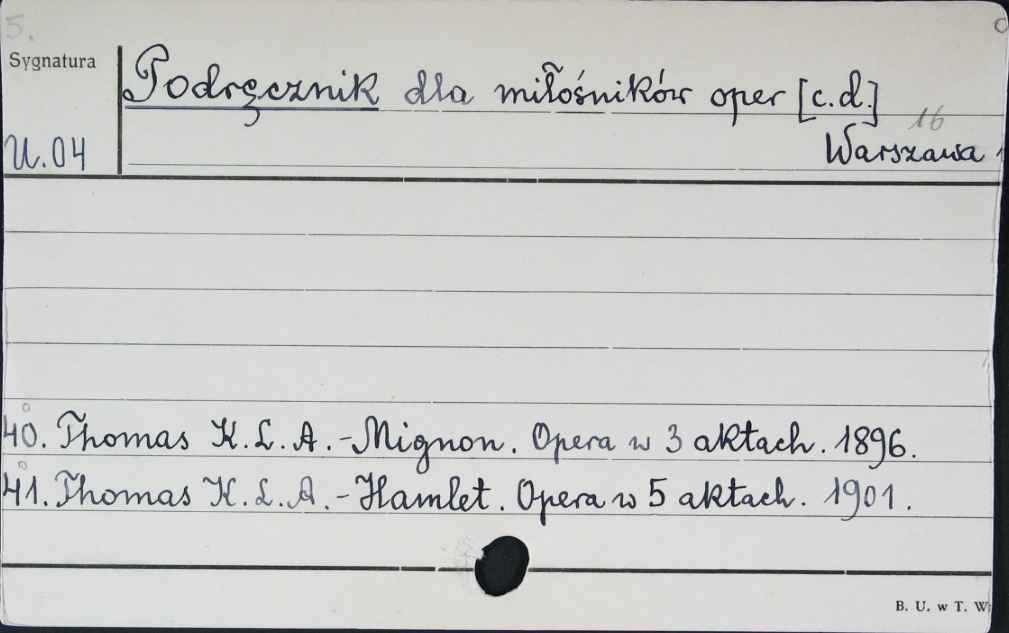 5.
Sygnatura
Podręcznik dla miłośników oper [c.d.]
16
U.04
Warszawa
40. Thomas K. L. A. - Mignon. Opera w 3 aktach. 1896.
41. Thomas K. L. A. - Hamlet. Opera w 5 aktach. 1901.
B. U. w T. W